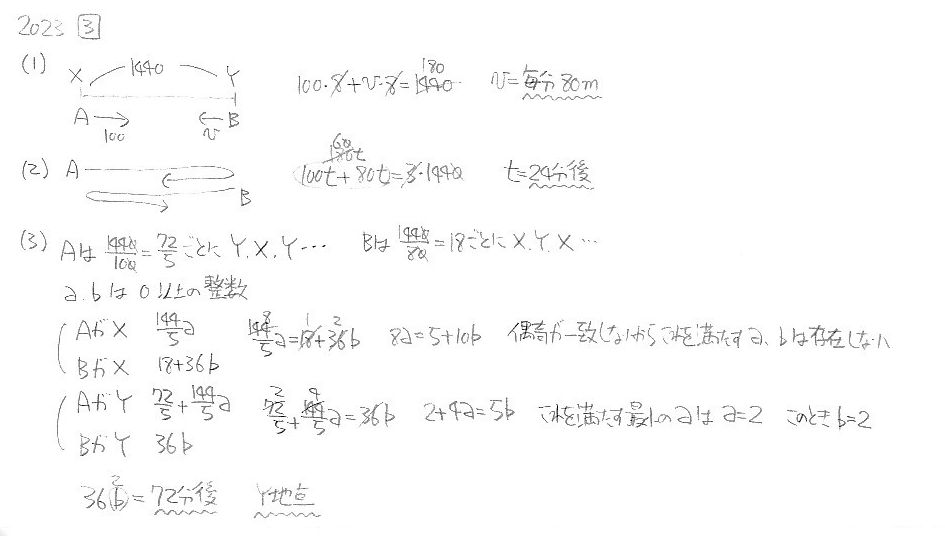 2023 3
(1) X 1440 Y 100・8+v・8=1440 180 v=毎分80m
A → 100 ← v B
(2) A B 180t 60 100t+80t=3・1440 t=24分後
(3) Aは 1440/100=72/5ごとに Y,X,Y… Bは 1440/80=18ごとに X,Y,X…
a,bは0以上の整数
AがX 144/5a 144/5a=18+36b 8 1 2 8a=5+10b 偶奇が一致しないからこれを満たすa、bは存在しない
BがX 18+36b
AがY 72/5+144/5a 72/5+144/5a=36b 2 4 2+4a=5b これを満たす最小のaはa=2 このときb=2
BがY 36b
36b 2 =72分後 Y地点